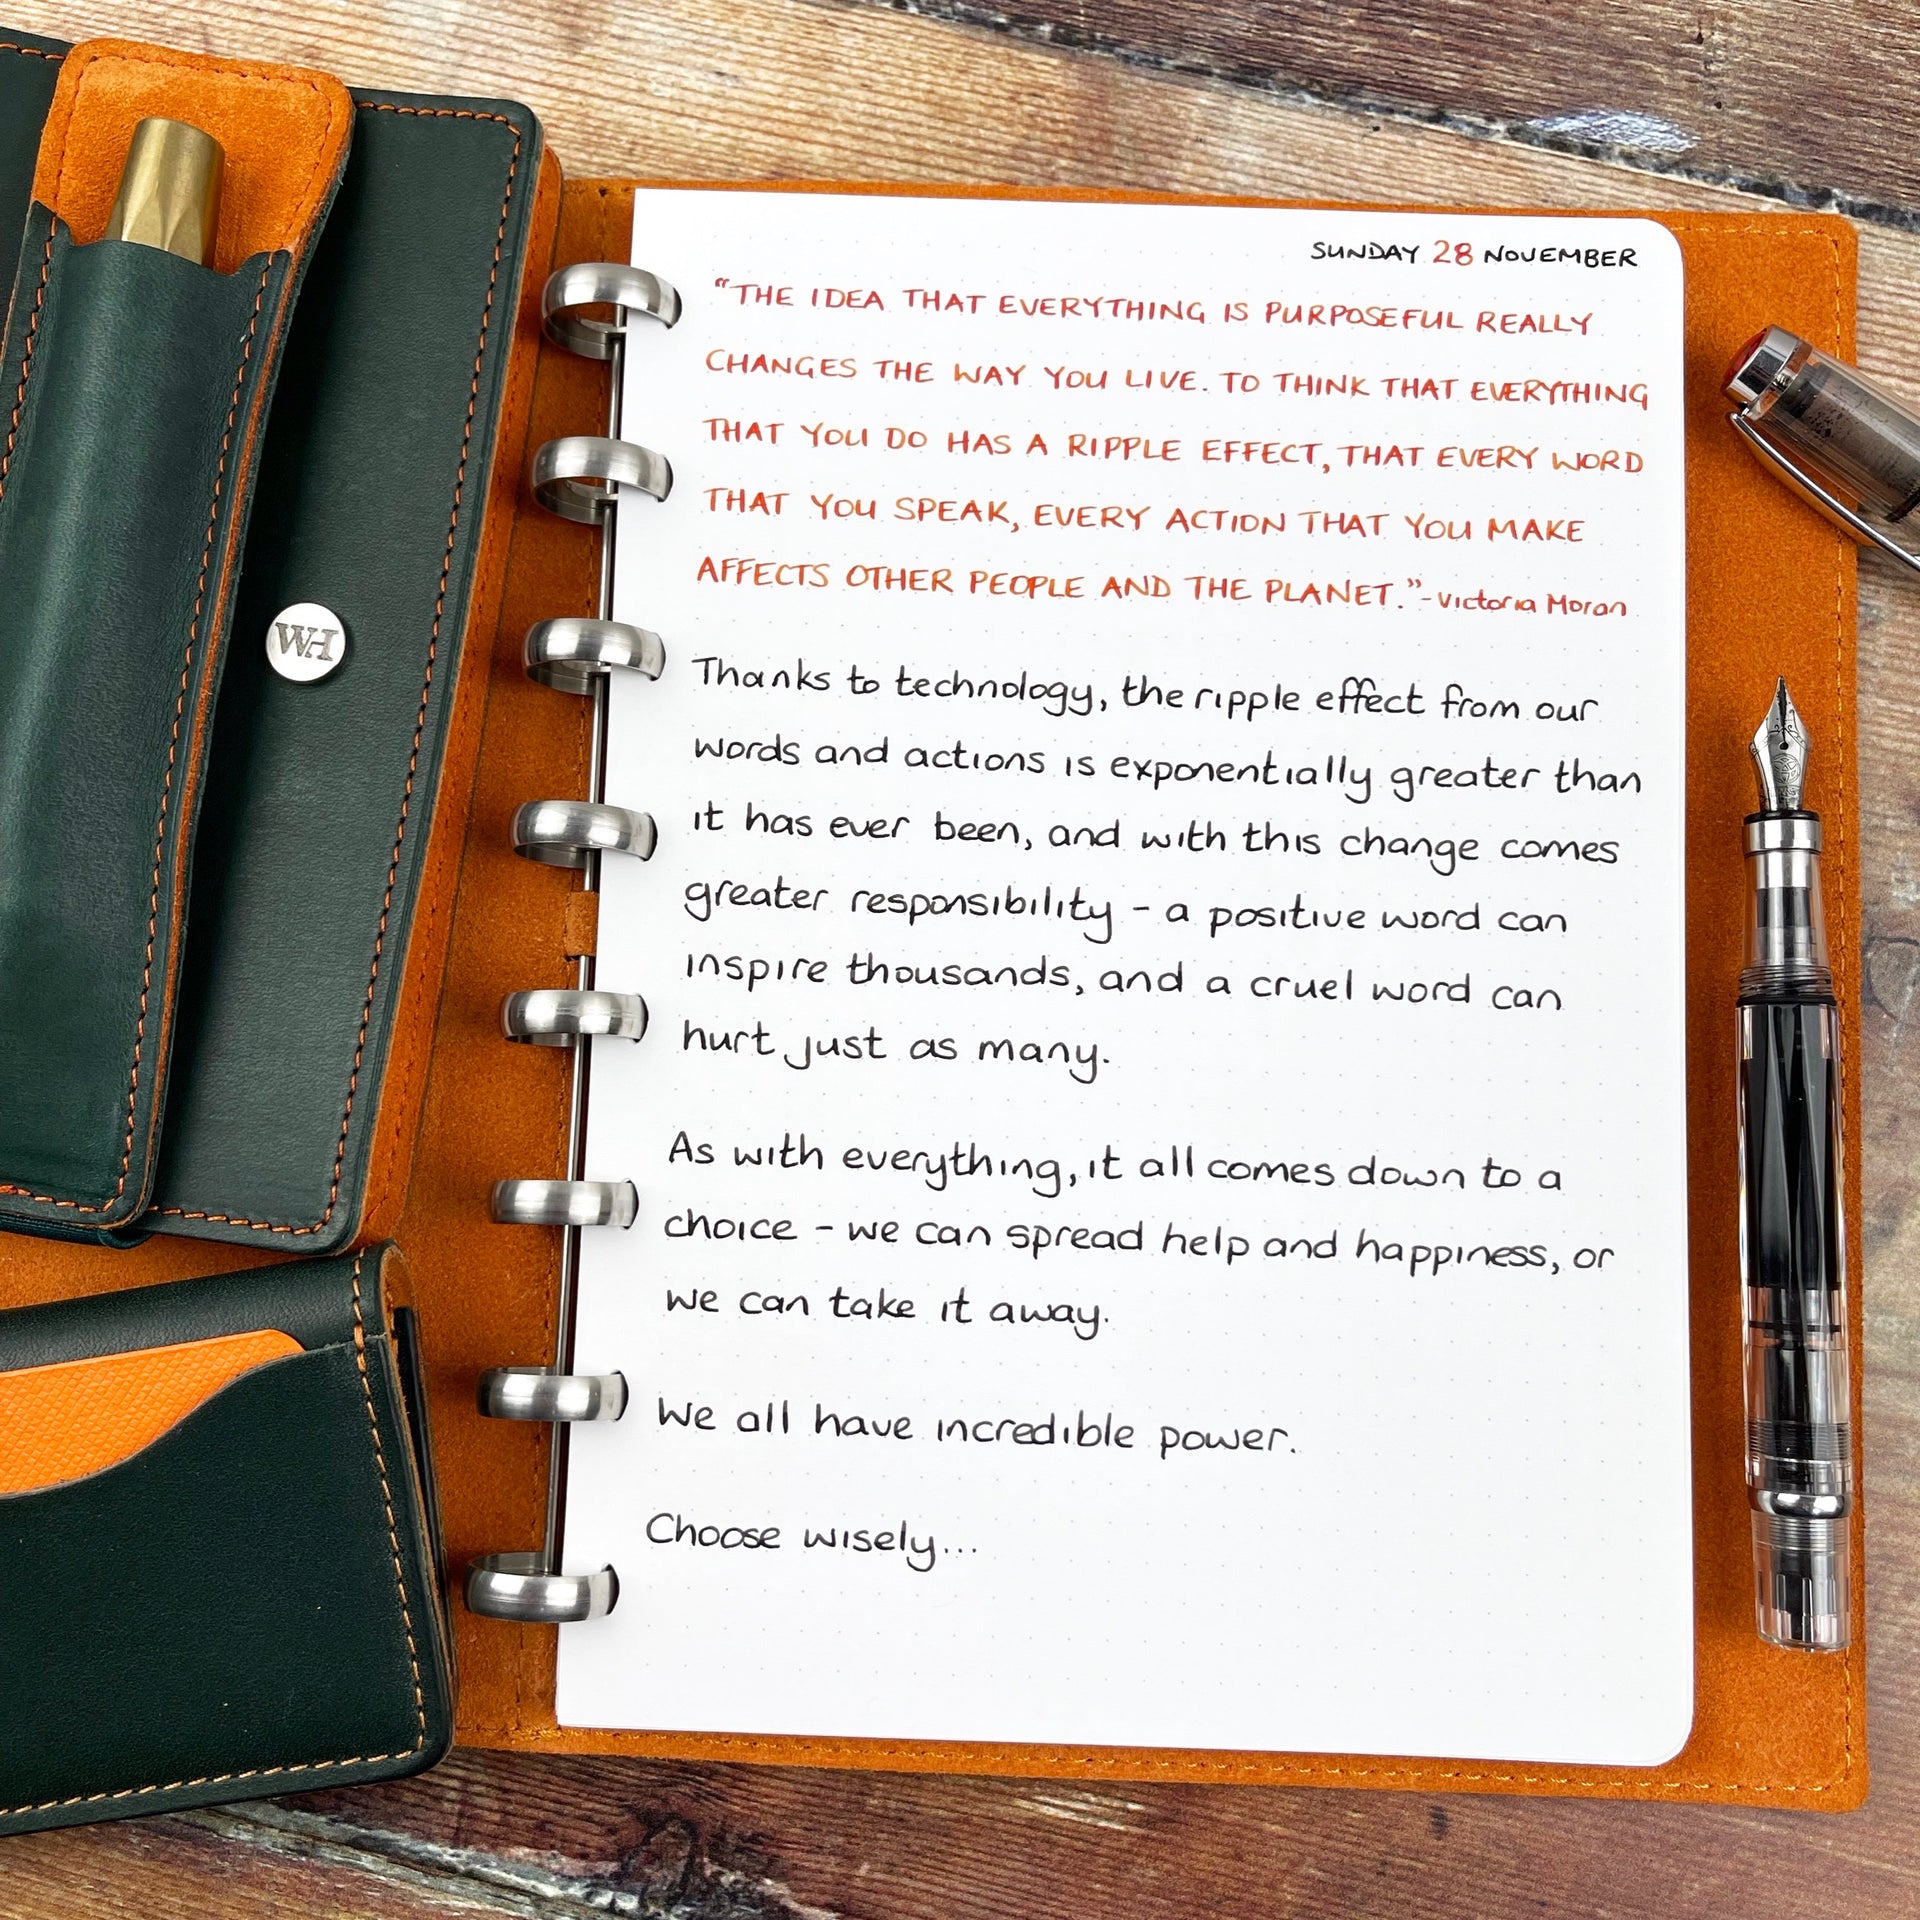 WH
SUNDAY 28 NOVEMBER
"THE IDEA THAT EVERYTHING IS PURPOSEFUL REALLY
CHANGES THE WAY YOU LIVE. TO THINK THAT EVERYTHING
THAT YOU DO HAS A RIPPLE EFFECT, THAT EVERY WORD
THAT YOU SPEAK, EVERY ACTION THAT YOU MAKE
AFFECTS OTHER PEOPLE AND THE PLANET." - Victoria Moran
Thanks to technology, the ripple effect from our
words and actions is exponentially greater than
it has ever been, and with this change comes
greater responsibility - a positive word can
inspire thousands, and a cruel word can
hurt just as many.
As with everything, it all comes down to a
choice - we can spread help and happiness, or
we can take it away.
We all have incredible power.
Choose wisely...